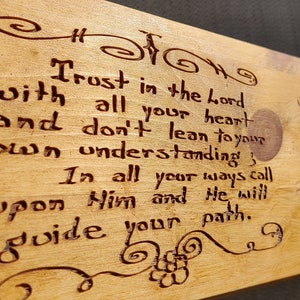 Trust in the Lord
with all your heart
and don't lean to your
own understanding;
In all your ways call
upon Him and He will
guide your path.